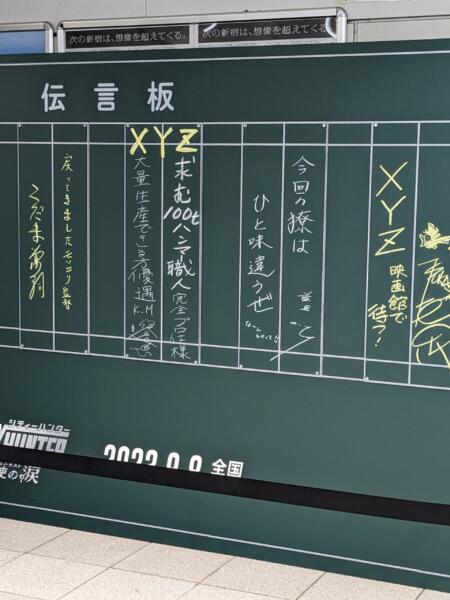 次の新宿は、想像を超えてくる。
次の新宿は、想像を超えてくる。
伝言板
XYZ
映画館で
待つ!
今回の獠は
ひと味違うぜ
XYZ
求む
100t
ハンマー職人
完全プロ仕様
大量生産できる方優遇
K.M
戻ってきましたモッコリ監督
こだま兼嗣
シティーハンター
HUNTER
使の涙
2023.9.8 全国